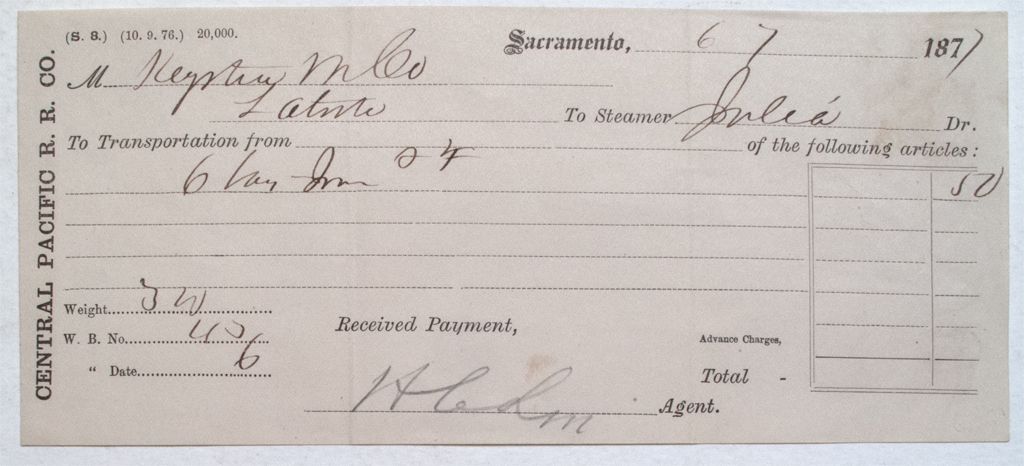 CENTRAL PACIFIC R. R. CO.
(S. S.) (10. 9. 76.) 20,000.
Sacramento, 6 7 1877
M Co
Latrobe
To Steamer Julia Dr.
To Transportation from of the following articles:
6 Iron 54
50
Weight
W. B. No.
" Date 6
Received Payment,
Advance Charges,
Total -
Agent.